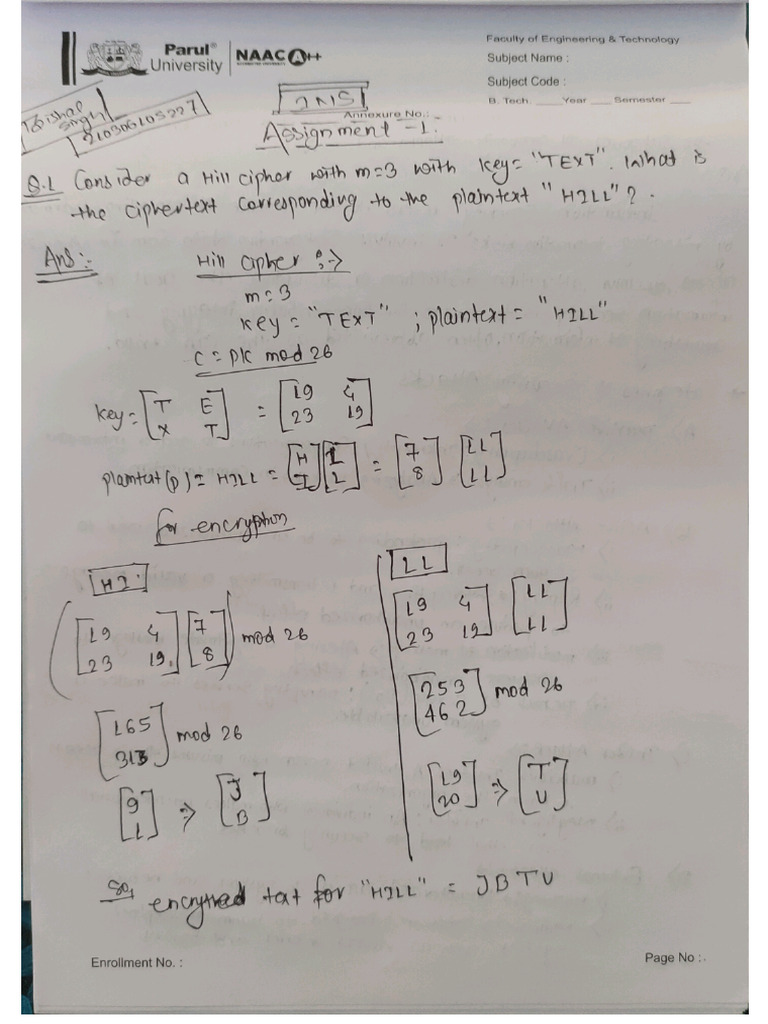 Parul® University
NAAC A++
Faculty of Engineering & Technology
Subject Name :
Subject Code :
B. Tech. ____ Year ____ Semester ____
Singh
210306105227
INS
Annexure No.:
Assignment -1.
Q.1 Consider a Hill cipher with m=3 with key= "TEXT". What is
the ciphertext corresponding to the plaintext "HILL"?
Ans:-
Hill cipher :->
m=3
key = "TEXT" ; plaintext = "HILL"
C = PK mod 26
key = [T E
X T] = [19 4
23 19]
plaintext(p) = HILL = [H
I] [L
L] = [7
8] [11
11]
for encryption
HI
([19 4
23 19] [7
8]) mod 26
[165
313] mod 26
[9
1] => [J
B]
LL
[19 4
23 19] [11
11]
[253
462] mod 26
[19
20] => [T
U]
So, encrypted text for "HILL" = JBTU
Enrollment No. :
Page No :